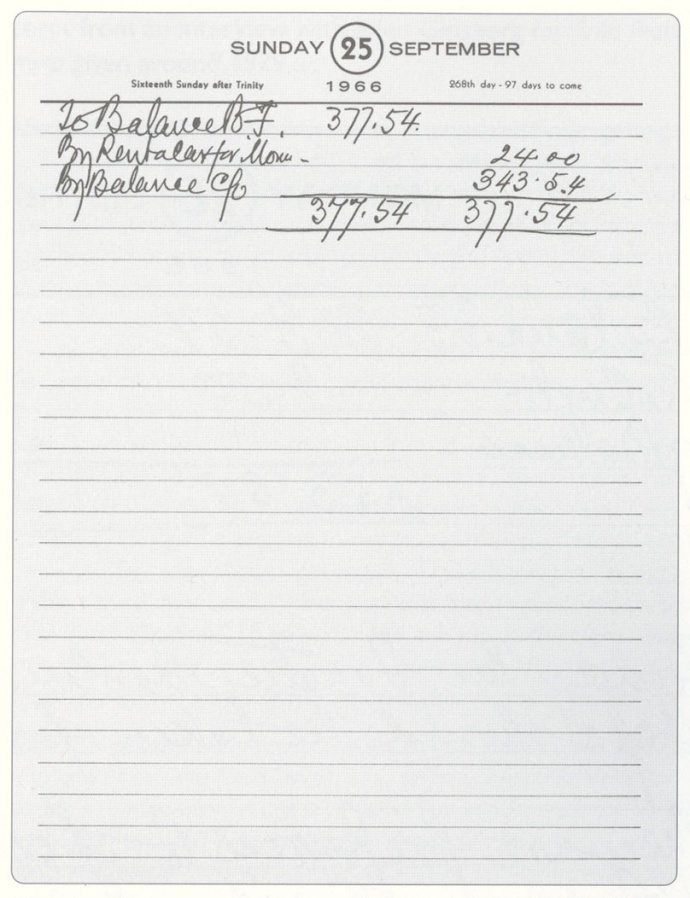 SUNDAY 25 SEPTEMBER
Sixteenth Sunday after Trinity 1966 268th day - 97 days to come
To Balance B.F. 377.54.
By Rent a Car for - 24.00
By Balance C/o 343.54
377.54 377.54